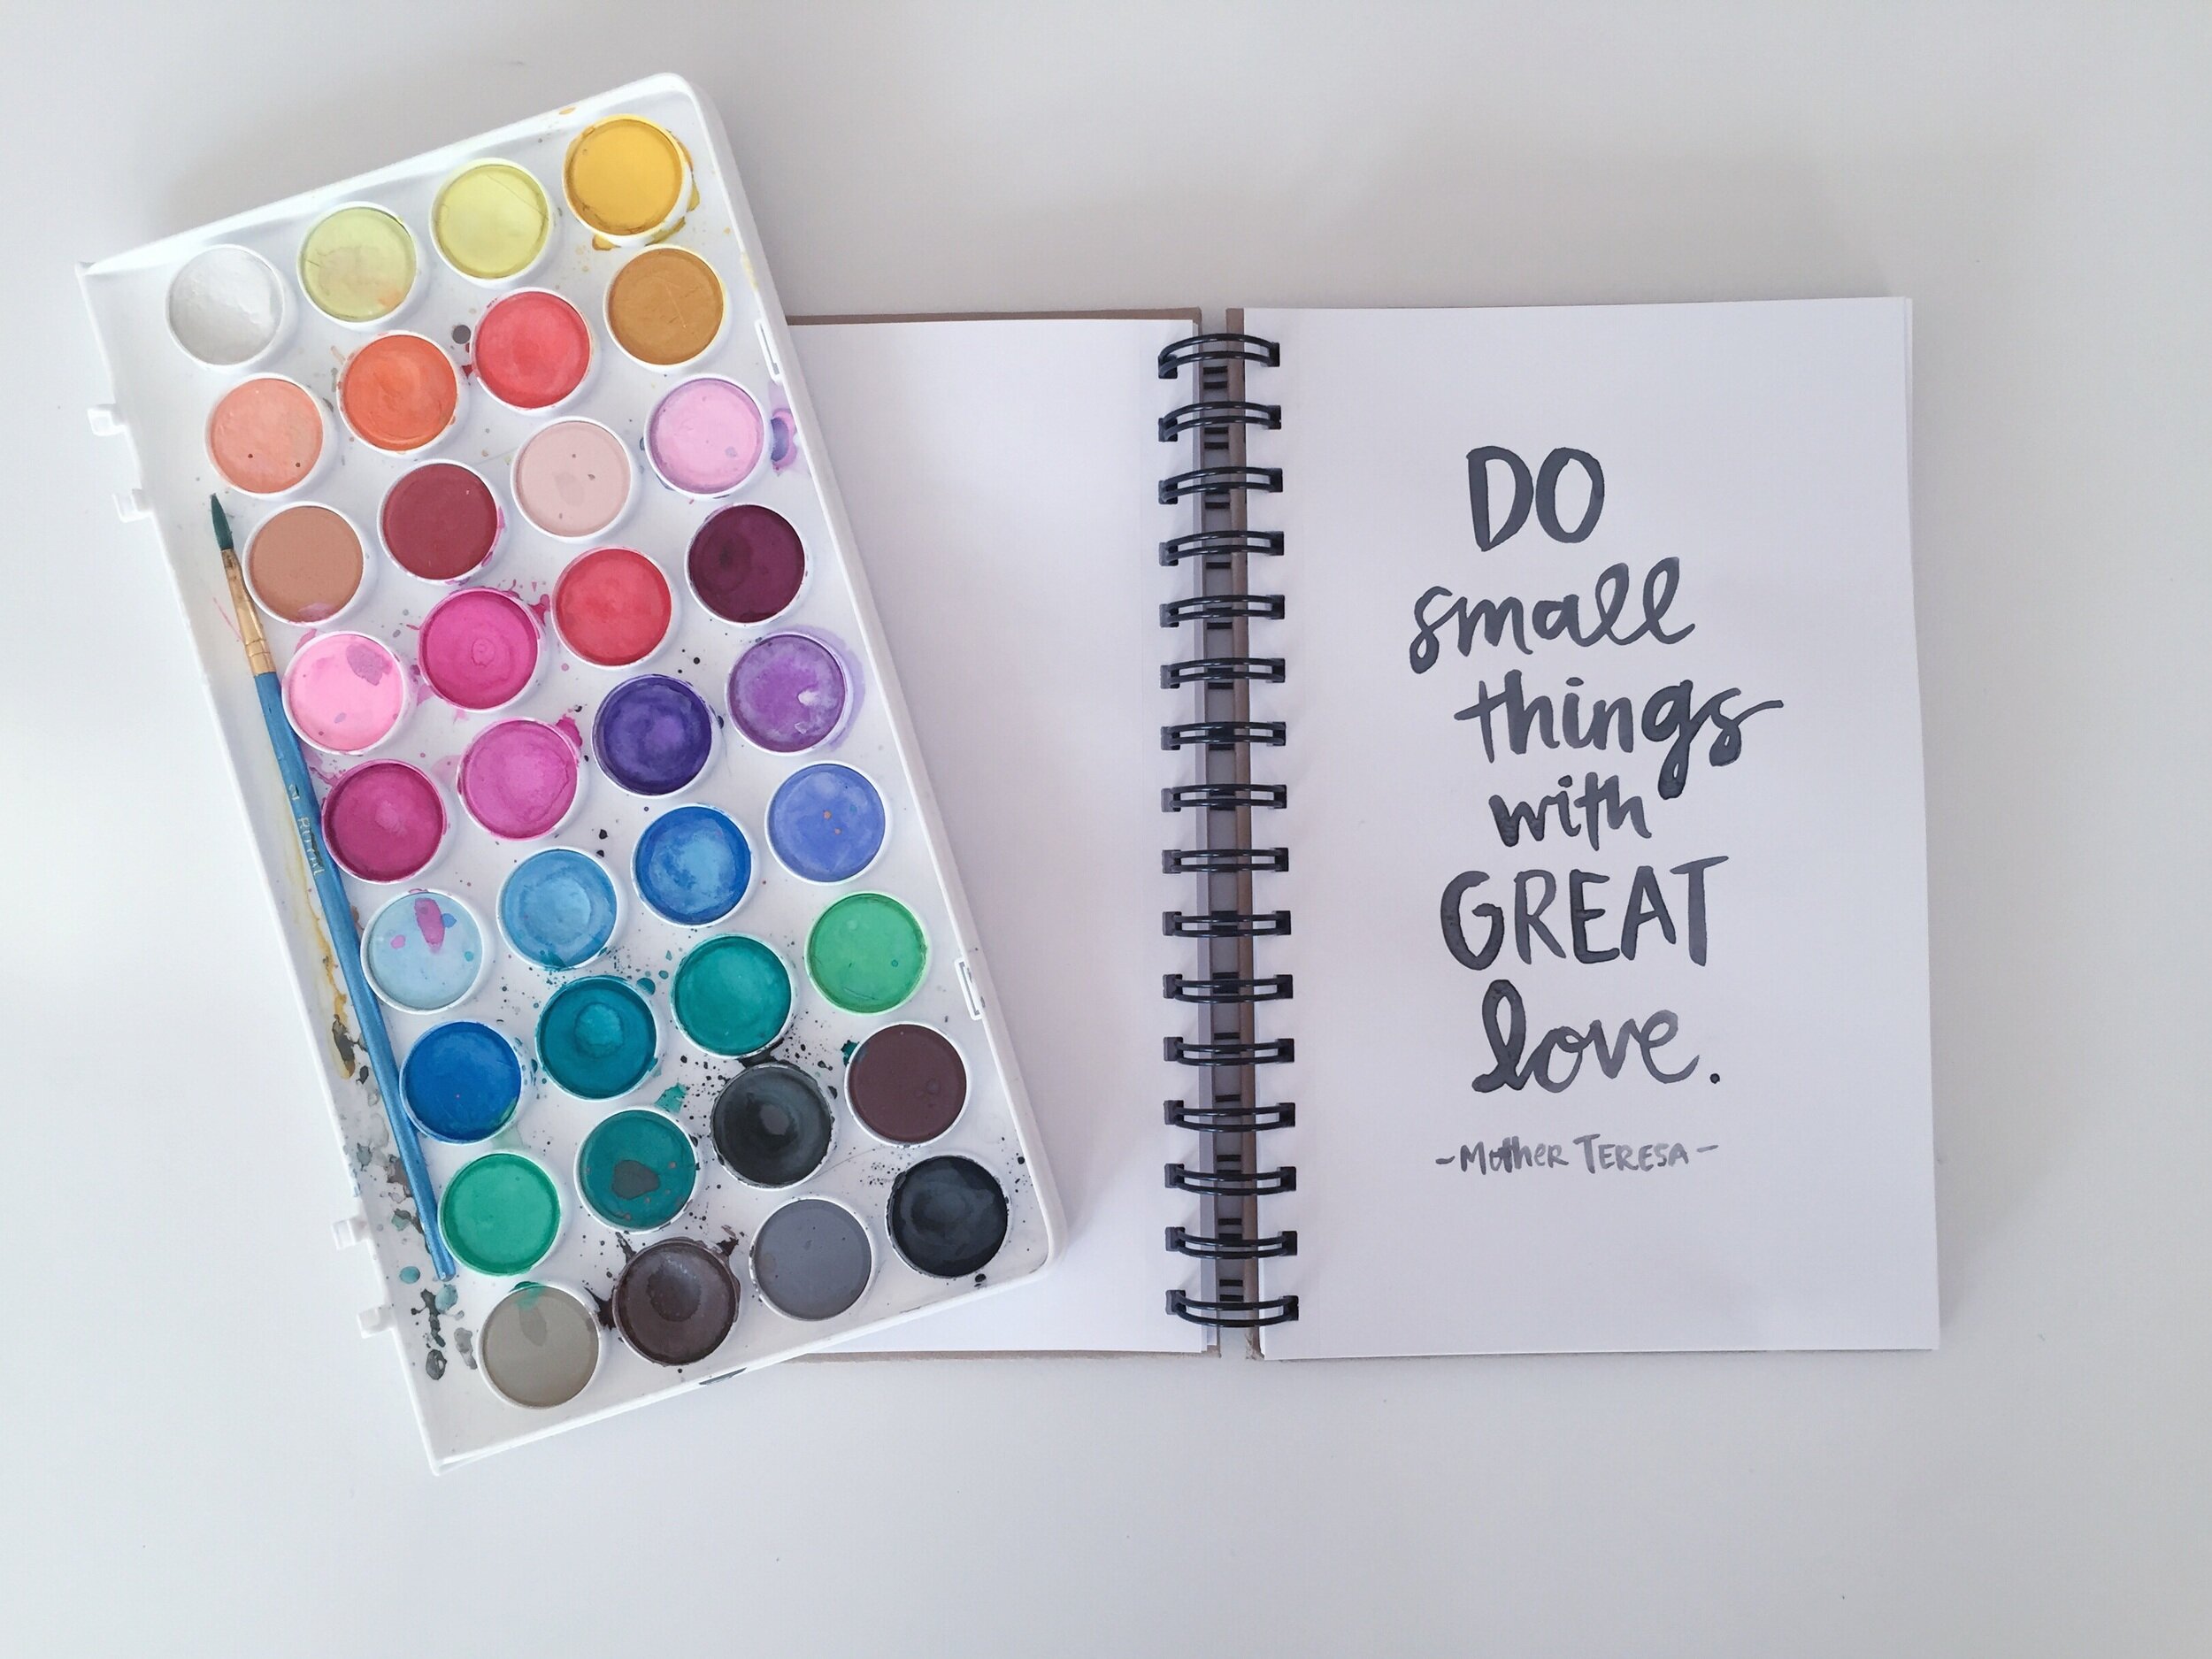 DO
small
things
with
GREAT
love.
-Mother Teresa-